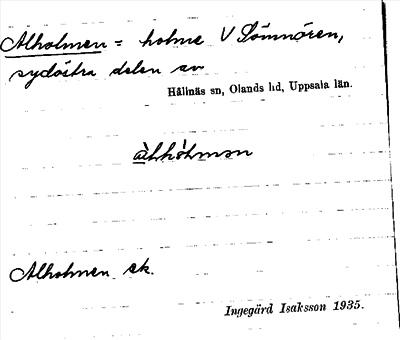 Alholmen = holme V Sömnören,
sydöstra delen av
Hållnäs sn, Olands hd, Uppsala län.
àlhòlmən
Alholmen ek.
Ingegärd Isaksson 1935.